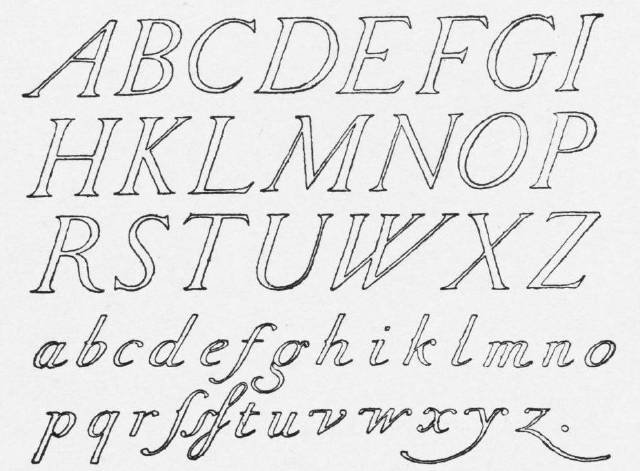 ABCDEFGI
HKLMNOP
RSTUWXZ
abcdefghiklmno
pqrſsſtuvwxyz.